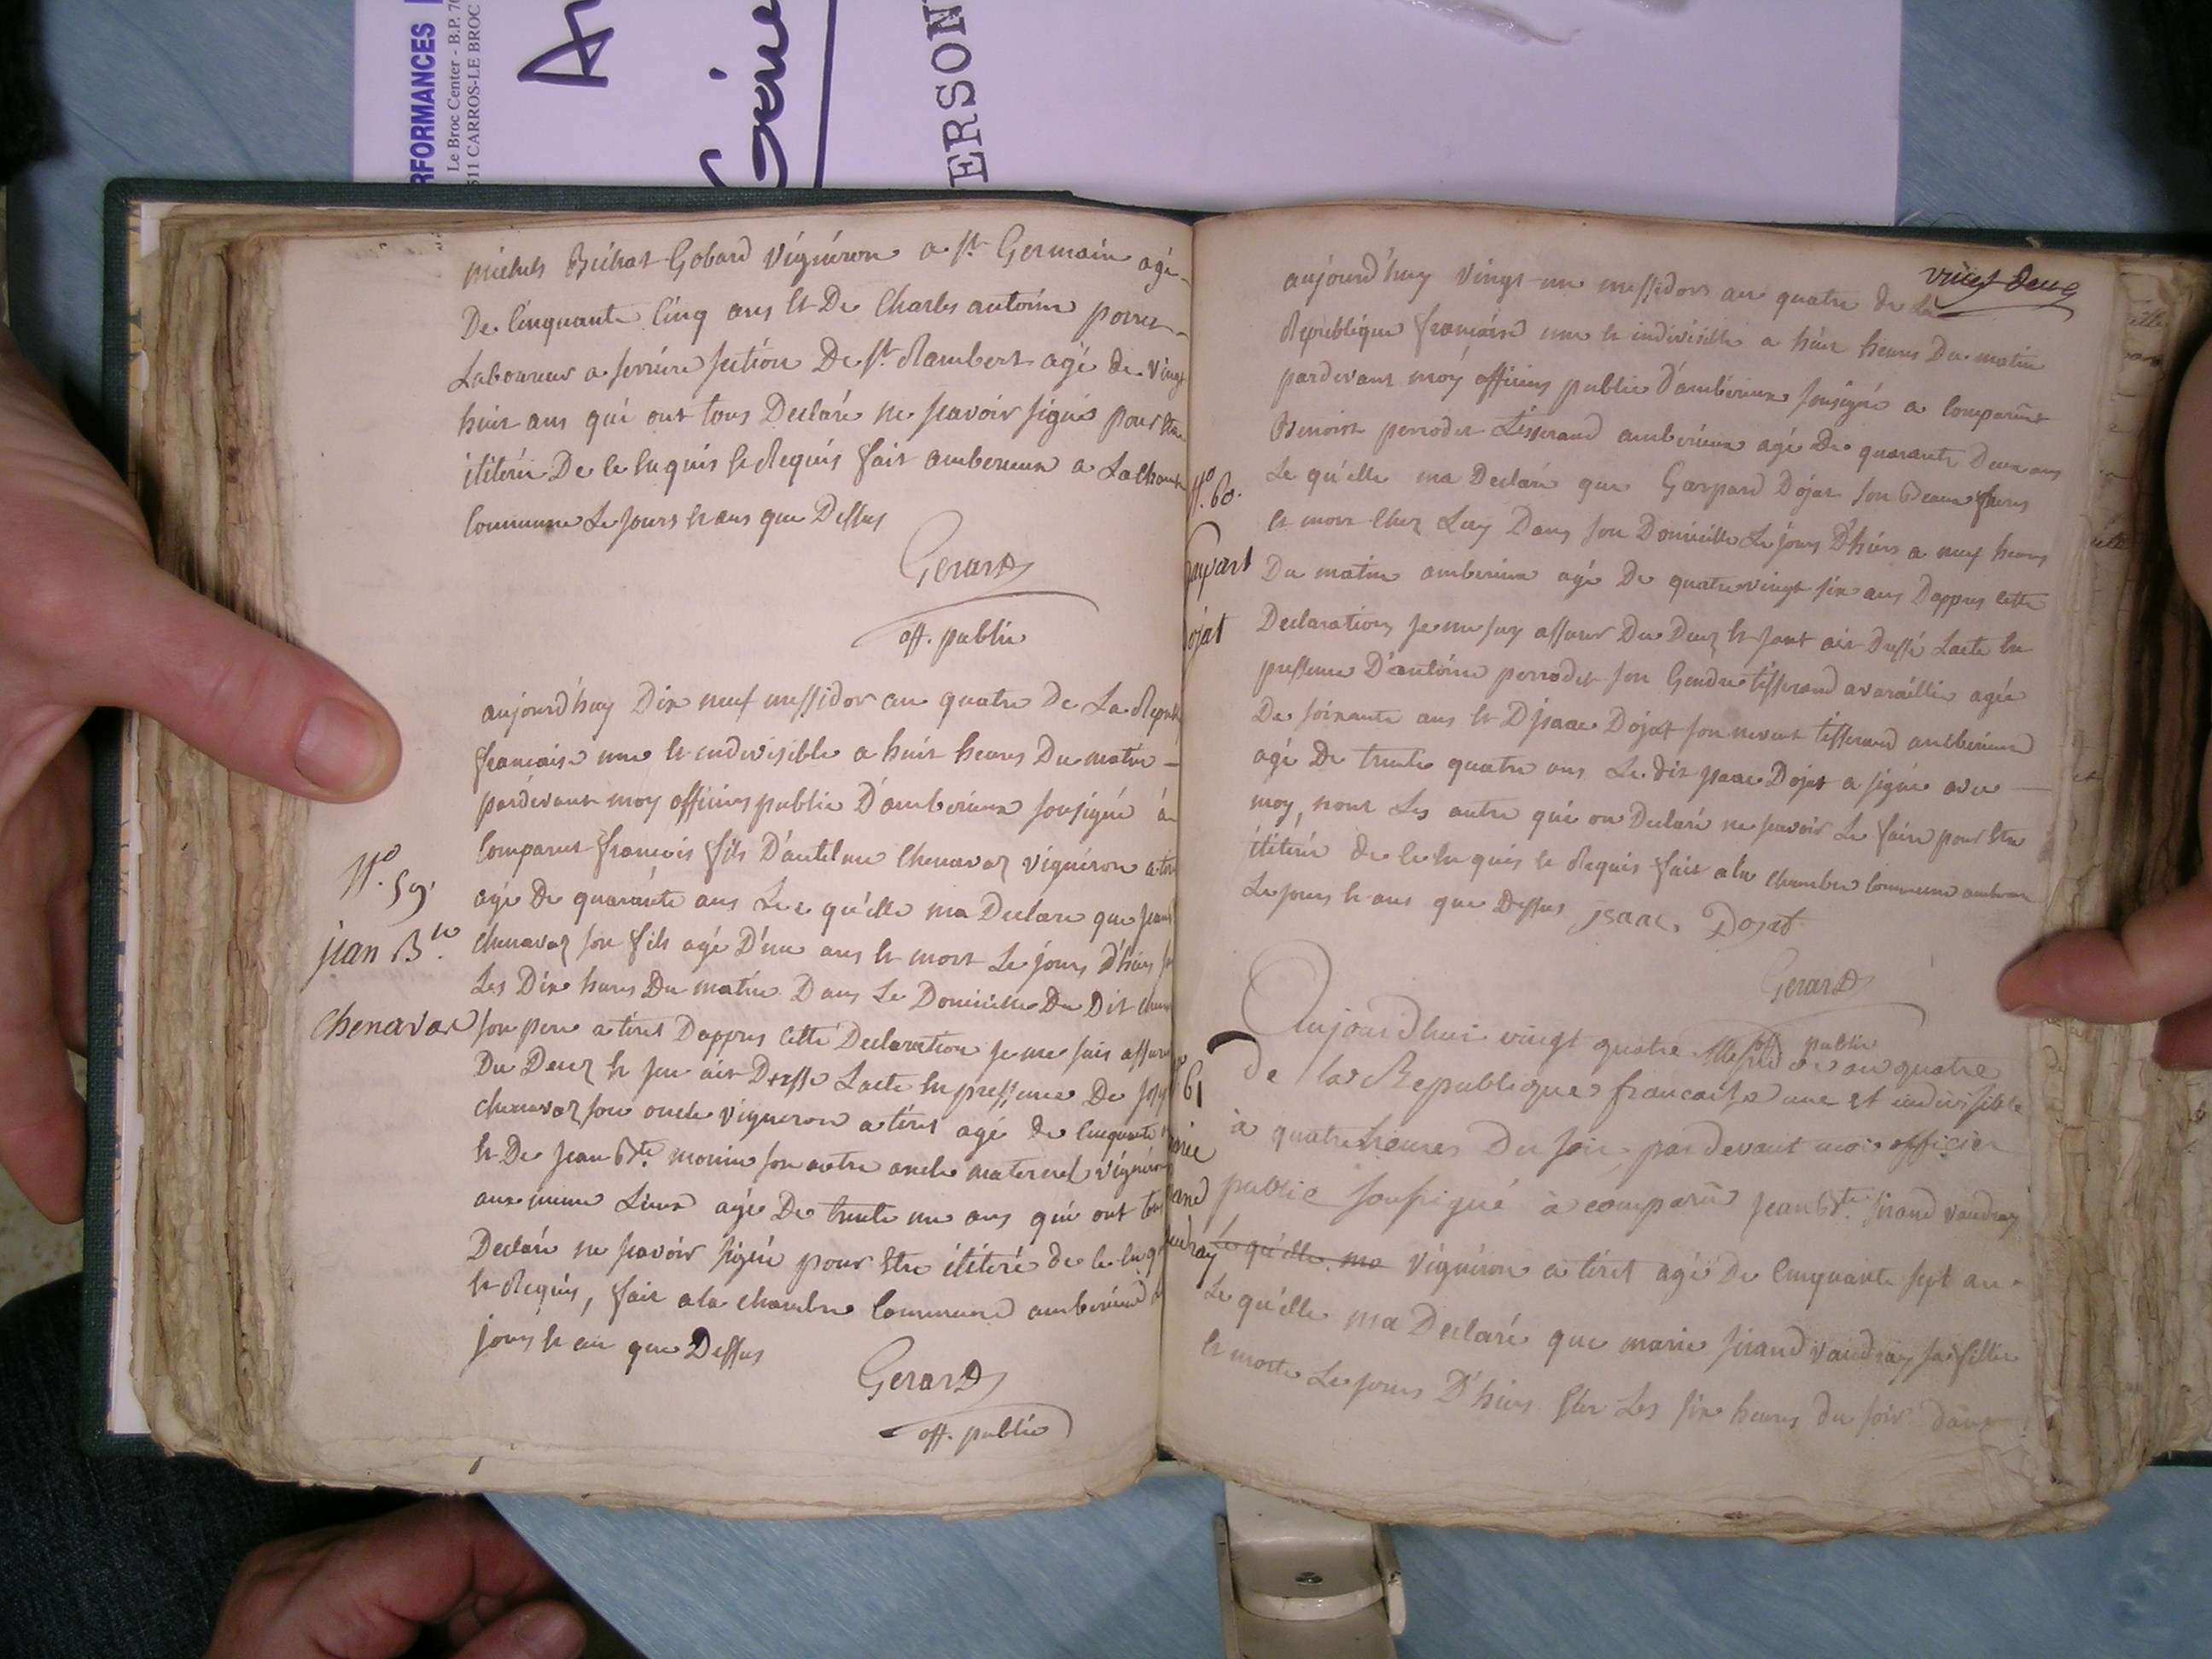 RFORMANCES
Le Broc Center - B.P. 70
511 CARROS-LE BROC
ERSON
michel Bichat Gobard vigniron a st Germain agé
De Cinquante Cinq ans et De Charles antoine porret
Laboureur a serriere section De st Rambert agé de vingt
huit ans qui ont tous Declaré ne scavoir signé pour
De ce enquis et Requis fait amberieux a La Chambre
Commune Le jours et ans que Dessus
Gerard
off. public
aujourd'huy Dix neuf messidor an quatre De La Repub
francaise une et indivisible a huit heures Du matin
pardevant moy officiers public D'amberieux sousigné à
Comparut francois fils D'antelme Chenavaz vigniron a
agé De quarante ans Le qu'elle ma Declare que jean
N.o 59.
jean B.te
chenavaz
chenavaz son fils agé D'une ans et mort Le jours D'hiers
Les Dix heures Du matin Dans Le Domicille Du Dit
son pere a tiret Dappres Cette Declaration je me suis assure
Du Deces et jen ait Dresse Lacte en pressence De
chenavaz son oncle vigneron a tiret agé de Cinquante
et De jean B.te monin son autre oncle maternel vigniron
aux meme Lieux agé De trente une ans qui ont tous
Declaré ne scavoir signé pour Etre de ce
et Requis, fait a la chambre Commune amberieux
jours et an que Dessus
Gerard
off. public
vingt deux
aujourd'huy vingt une messidors an quatre de La
Republique francaise une et indivisible a huit heures Du matin
pardevant moy officiers public D'amberieux sousigné a Comparut
Benoist perrodet Tisserand amberieux agé De quarante Deux ans
N.o 60.
Gaspart
Dojat
Le qu'elle ma Declaré que Gaspard Dojat son Beaux freres
et mort Chez Luy Dans son Domicille Le jours D'hiers a neuf heures
Du matin amberieux agé De quatre vingt six ans Dappres cette
Declarations je me suy assurer Du Deces et jent ait Dressé Lacte en
pressence D'antoine perrodet son Gendre tisserand a varaillie agée
De soixante ans et D'jsaac Dojat son neveut tisserand amberieux
agé De trente quatre ans Le dit jsaac Dojat a signé avec
moy, nont Les autre qui on Declaré ne scavoir Le faire pour Etre
de ce enquis et Requis fait a la chambre Commune
Le jours et ans que Dessus jsaac Dojat
Gerard
off public
61
Aujourdhui vingt quatre Messidor an quatre
de la Republique francaise une et indivisible
à quatre heures Du soir, pardevant moi officier
public soussigné à comparu jean B.te sirand vaudray
Le qu'elle ma vigniron a tiret agé De Cinquante sept ans
Le qu'elle ma Declaré que marie sirand vaudray sa fillie
et morte Le jours D'hiers sur Les six heures du soir dans